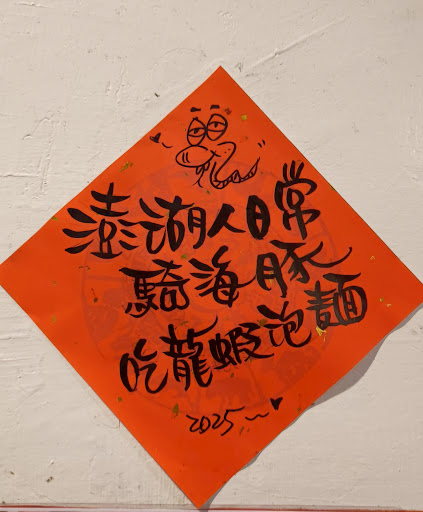 澎湖人日常
騎海豚
吃龍蝦泡麵
2025